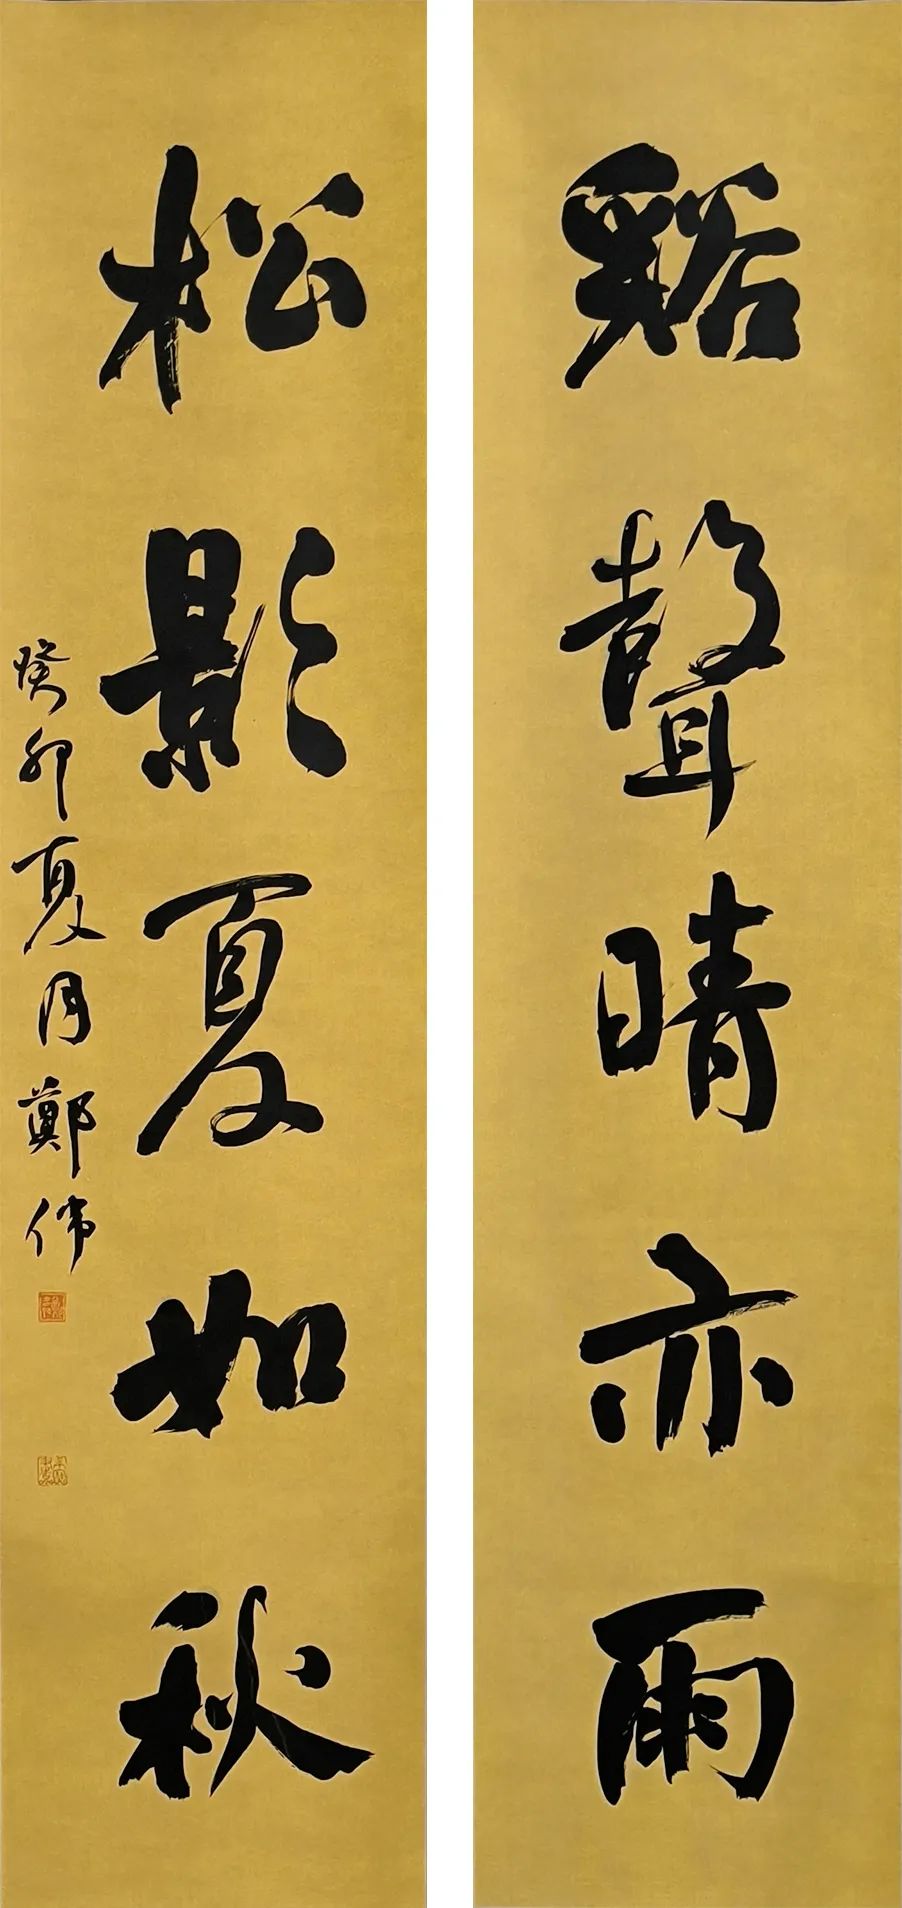 谿聲晴亦雨
松影夏如秋
癸卯夏月鄭偉